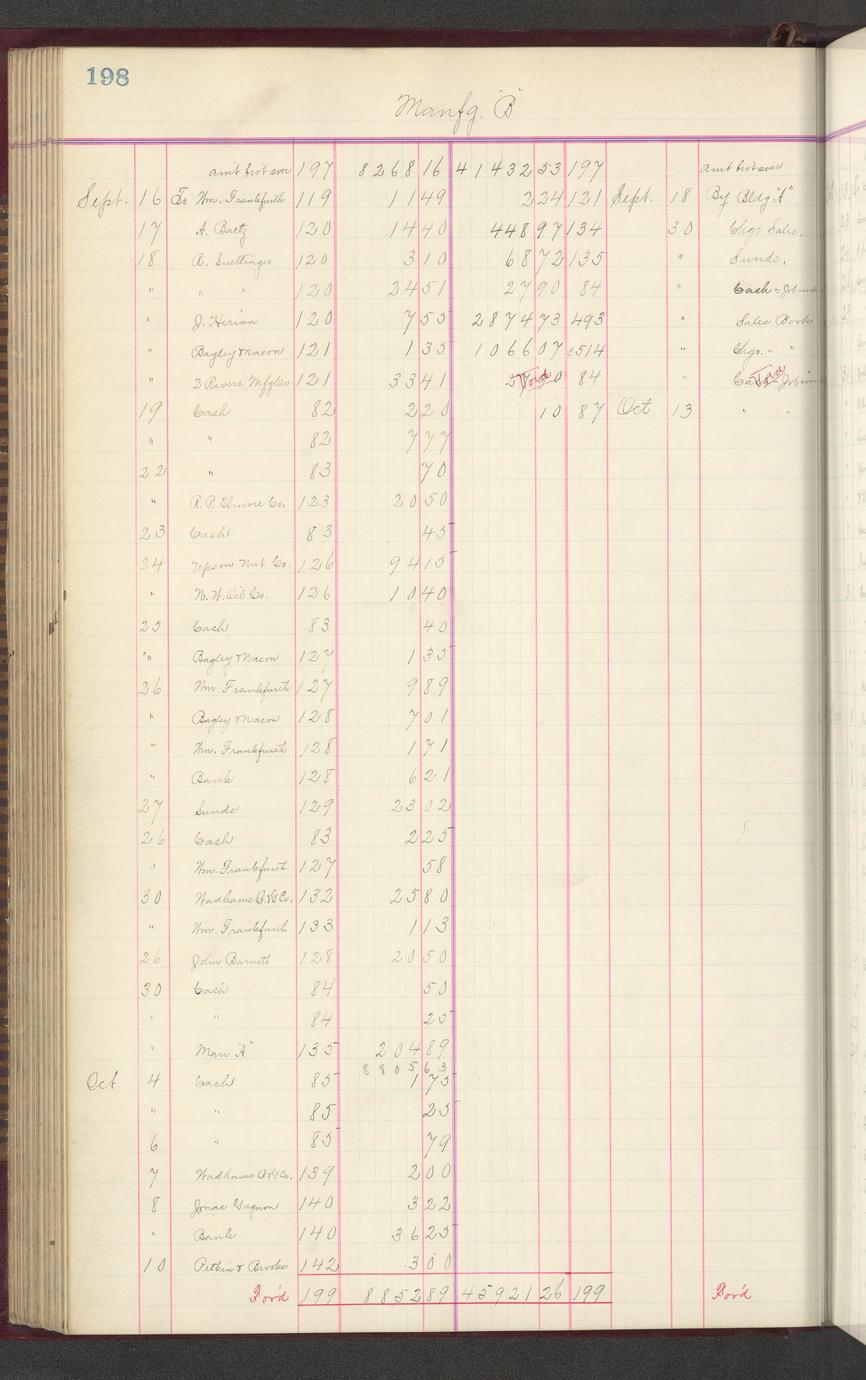 198
Manfg. "B"
am't bro't over 197 8268 16 41432 53 197 am't bro't over
Sept. 16 To Wm. Frankfurth 119 11 49 2 24 121 Sept. 18 By Bldg "A"
17 A. Baetz 120 14 40 448 97 134 30 Chgs Sales.
18 R. Suettinger 120 3 10 68 72 135 " Sunds.
" " " 120 24 51 27 90 84 " Cash - Job work
" J. Herian 120 7 55 2874 73 493 " Sales Book
" Bagley & Mason 121 1 35 1066 07 c514 " Chgs. " "
" 2 Rivers Mfg Co 121 33 41 Void 84 " Cash - Void
19 Cash 82 2 20 10 87 Oct 13 " "
" " 82 7 77
22 " 83 70
" R.P. Elmore Co. 123 20 50
23 Cash 83 45
24 Upson Nut Co. 126 94 15
" N.W. Oil Co. 126 10 40
25 Cash 83 40
" Bagley & Mason 127 1 35
26 Wm. Frankfurth 127 9 89
" Bagley & Mason 128 7 01
" Wm. Frankfurth 128 1 71
" Bank 128 6 21
27 Sunds 129 23 02
26 Cash 83 2 25
" Wm. Frankfurth 127 58
30 Wadhams O. & G. Co. 132 25 80
" Wm. Frankfurth 133 1 13
26 John Barnett 128 20 50
30 Cash 84 50
" " 84 25
" Man "A" 135 204 89
8805 63
Oct. 4 Cash 85 1 75
" " 85 25
6 " 85 79
7 Wadhams O & G Co. 139 2 00
8 Jonas Gagnon 140 3 22
" Bank 140 36 25
10 Pitkin & Brooks 142 3 00
For'd 199 8852 89 45921 26 199 For'd